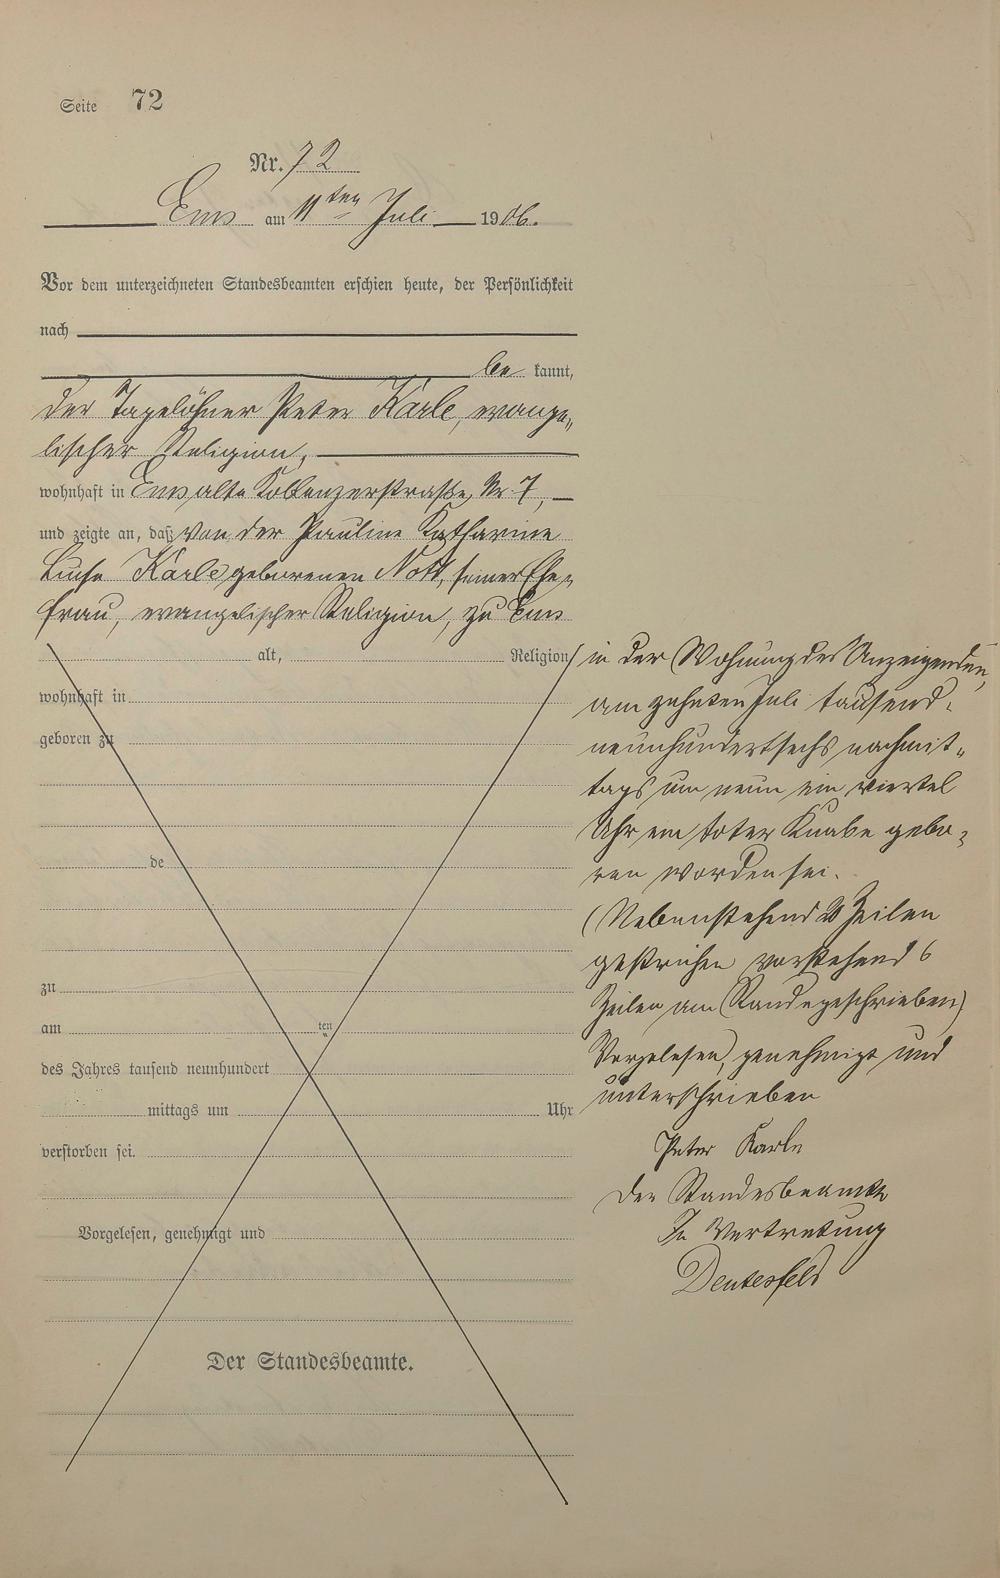 Seite 72
Nr. 72
Ems am 11ten Juli 1906.
Vor dem unterzeichneten Standesbeamten erschien heute, der Persönlichkeit
nach
be kannt,
der Tagelöhner Peter Karle, evange„
lischer Religion,
wohnhaft in Ems alte Koblenzerstraße, Nr 7,
und zeigte an, daß von der Pauline Katharine
Luise Karle geborenen Nott, seiner Ehe„
frau, evangelischer Religion, zu Ems
alt, Religion
wohnhaft in
geboren zu
de
zu
am ten
des Jahres tausend neunhundert
mittags um Uhr
verstorben sei.
Vorgelesen, genehmigt und
Der Standesbeamte.
in der Wohnung des Anzeigenden,
am zehnten Juli tausend„
neunhundertsechs nachmit„
tags um neun ein viertel
Uhr ein toter Knabe gebo„
ren worden sei.
(Nebenstehend 20 Zeilen
gestrichen vorstehend 6
Zeilen am Rande geschrieben)
Vorgelesen, genehmigt und
unterschrieben
Peter Karle
Der Standesbeamte
In Vertretung